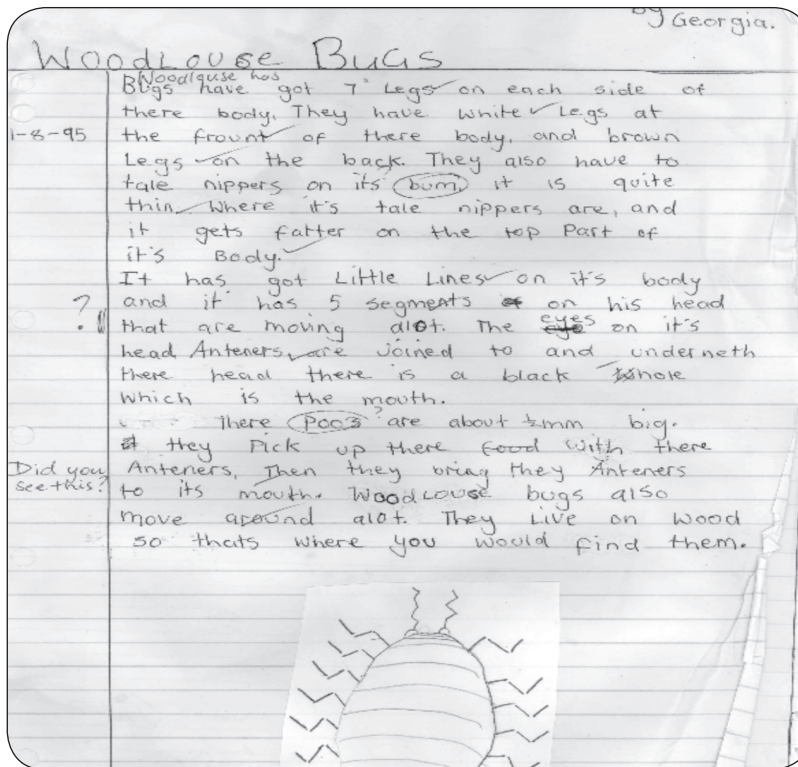 by Georgia.
Woodlouse Bugs
Woodlouse has
Bugs have got 7 Legs on each side of
there body. They have white Legs at
1-8-95 the frount of there body, and brown
Legs on the back. They also have to
tale nippers on its bum it is quite
thin Where it's tale nippers are, and
it gets fatter on the top Part of
it's Body.
It has got Little Lines on it's body
? and it has 5 segments on his head
that are moving alot. The eyes on it's
head Anteners, are joined to and underneth
there head there is a black hole
which is the mouth.
There Poos ? are about ½mm big.
they Pick up there food with there
Did you see this? Anteners, Then they bring they Anteners
to its mouth. Woodlouse bugs also
move around alot. They Live on wood
so thats where you would find them.